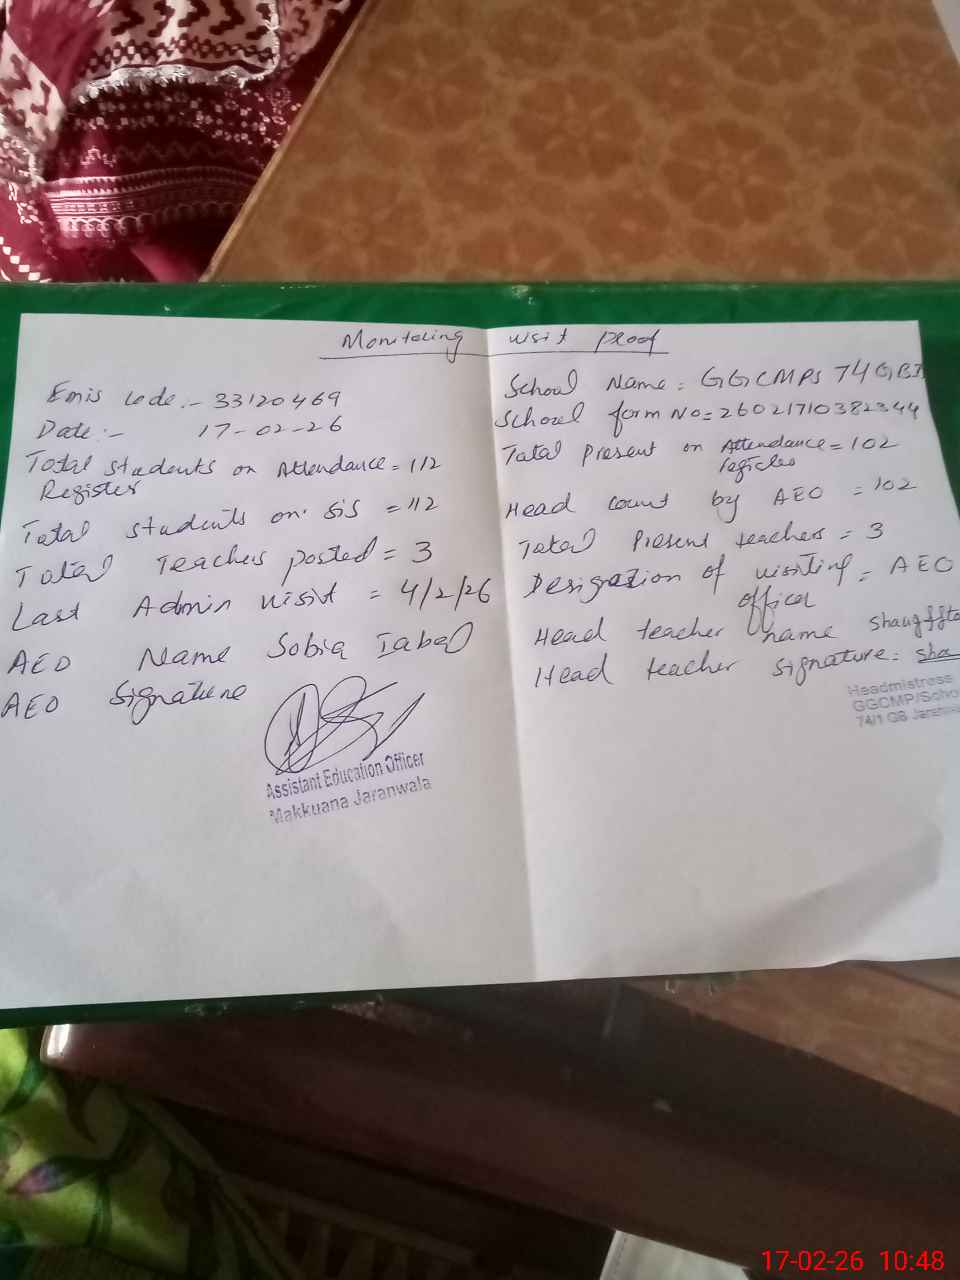 Monitoring visit proof
Emis code:- 33120469
Date:- 17-02-26
Total students on Attendance = 112
Register
Total students on sis = 112
Total Teachers posted = 3
Last Admin visit = 4/2/26
AEO Name Sobia Iabal
AEO Signature
Assistant Education Officer
Makkuana Jaranwala
School Name = GGCMPS 74 GB I
School form No = 26021710382344
Total present on Attendance = 102
register
Head count by AEO = 102
Total present teachers = 3
Designation of visiting = AEO
officer
Head teacher name
Head teacher signature = sha
Headmistress
GGCMP/Scho
74/1 GB
17-02-26 10:48